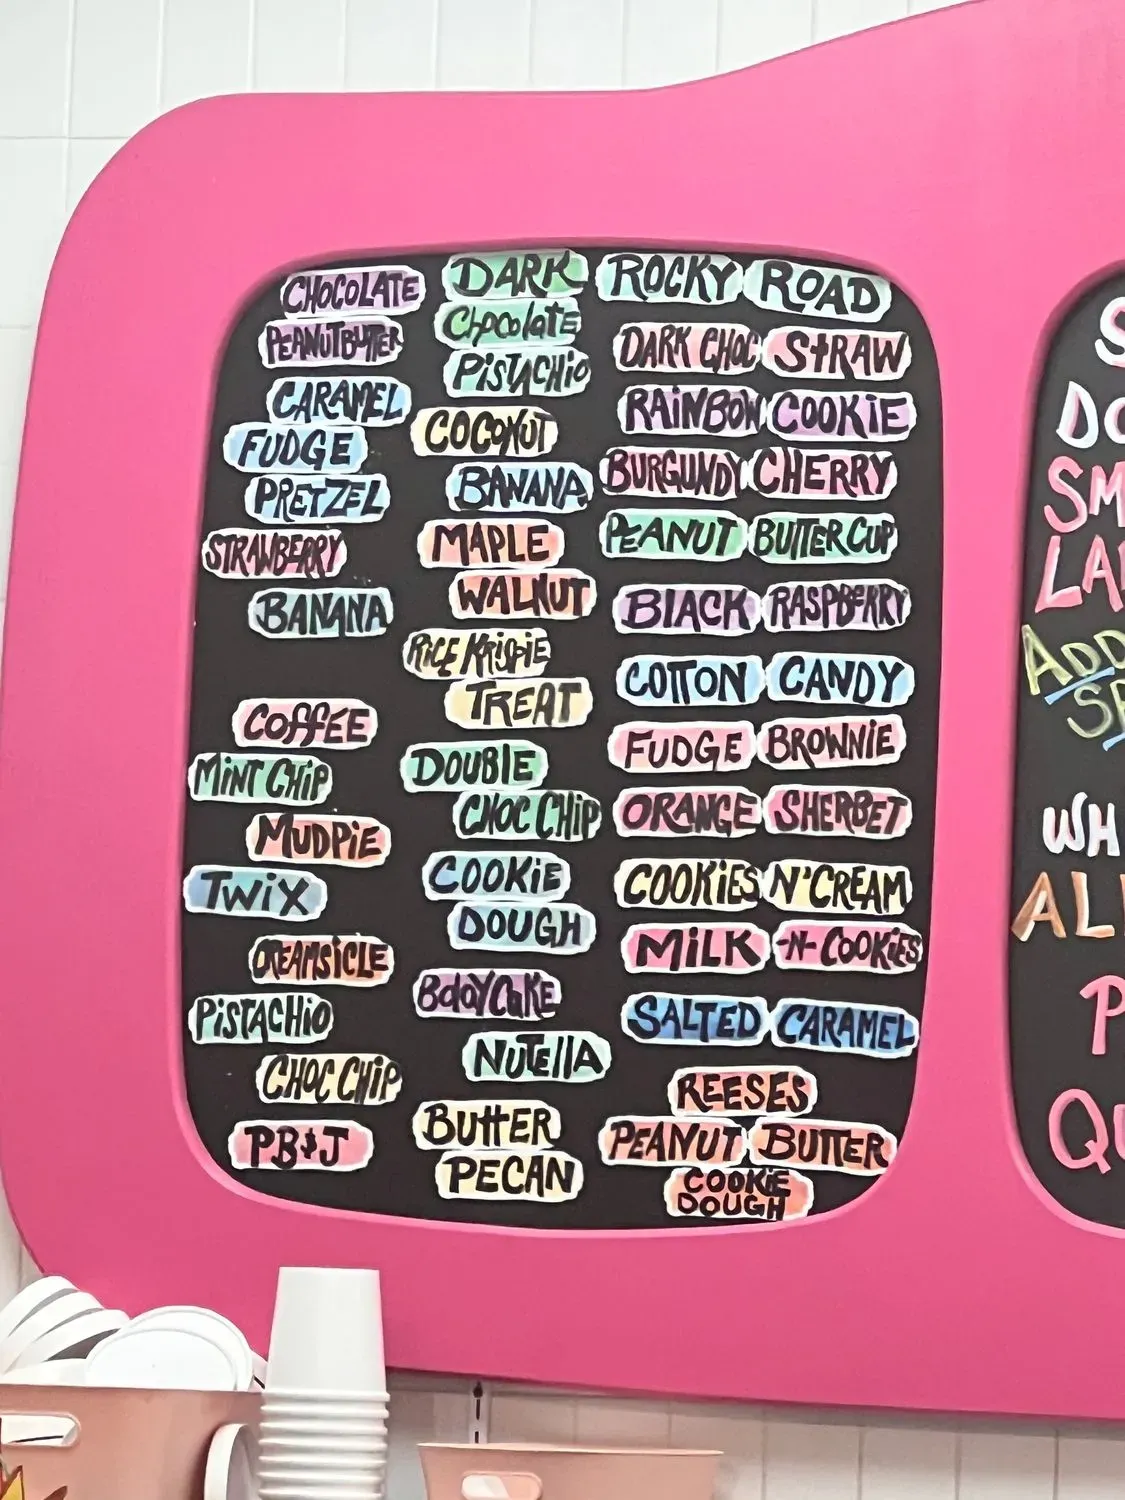 CHOCOLATE
PEANUTBUTTER
CARAMEL
FUDGE
PRETZEL
STRAWBERRY
BANANA
COFFEE
MINT CHIP
MUDPIE
TWIX
CREAMSICLE
PISTACHIO
CHOC CHIP
PB&J
DARK
Chocolate
PISTACHIO
COCONUT
BANANA
MAPLE
WALNUT
RICE KRISPIE
TREAT
DOUBLE
CHOC CHIP
COOKIE
DOUGH
BdayCake
NUTELLA
BUttER
PECAN
ROCKY ROAD
DARK CHOC StRAW
RAINBOW COOKIE
BURGUNDY CHERRY
PEANUT BUTTER CUP
BLACK RASPBERRY
COTTON CANDY
FUDGE BROWNIE
ORANGE SHERBET
COOKIES N'CREAM
MILK -N- COOKIES
SALTED CARAMEL
REESES
PEANUT BUTTER
COOKIE
DOUGH
S
DO
SM
LA
ADD
SP
WH
AL
P
QU